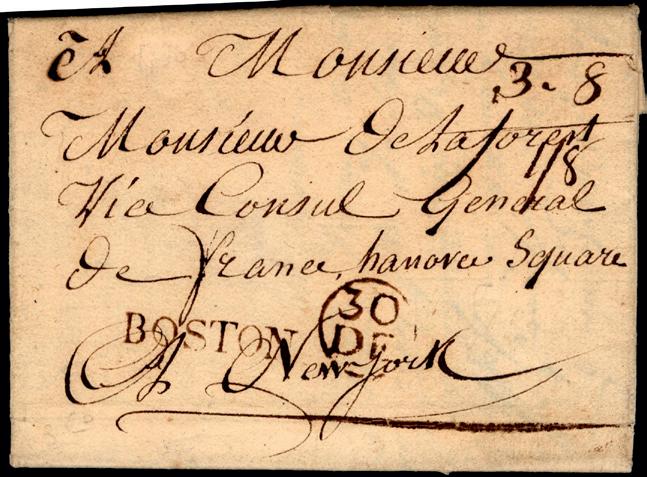 A Monsieur
3. 8
Monsieur De Laforest
1/8
Vice Consul General
de france, hanover Square
30
BOSTON DE
A New york